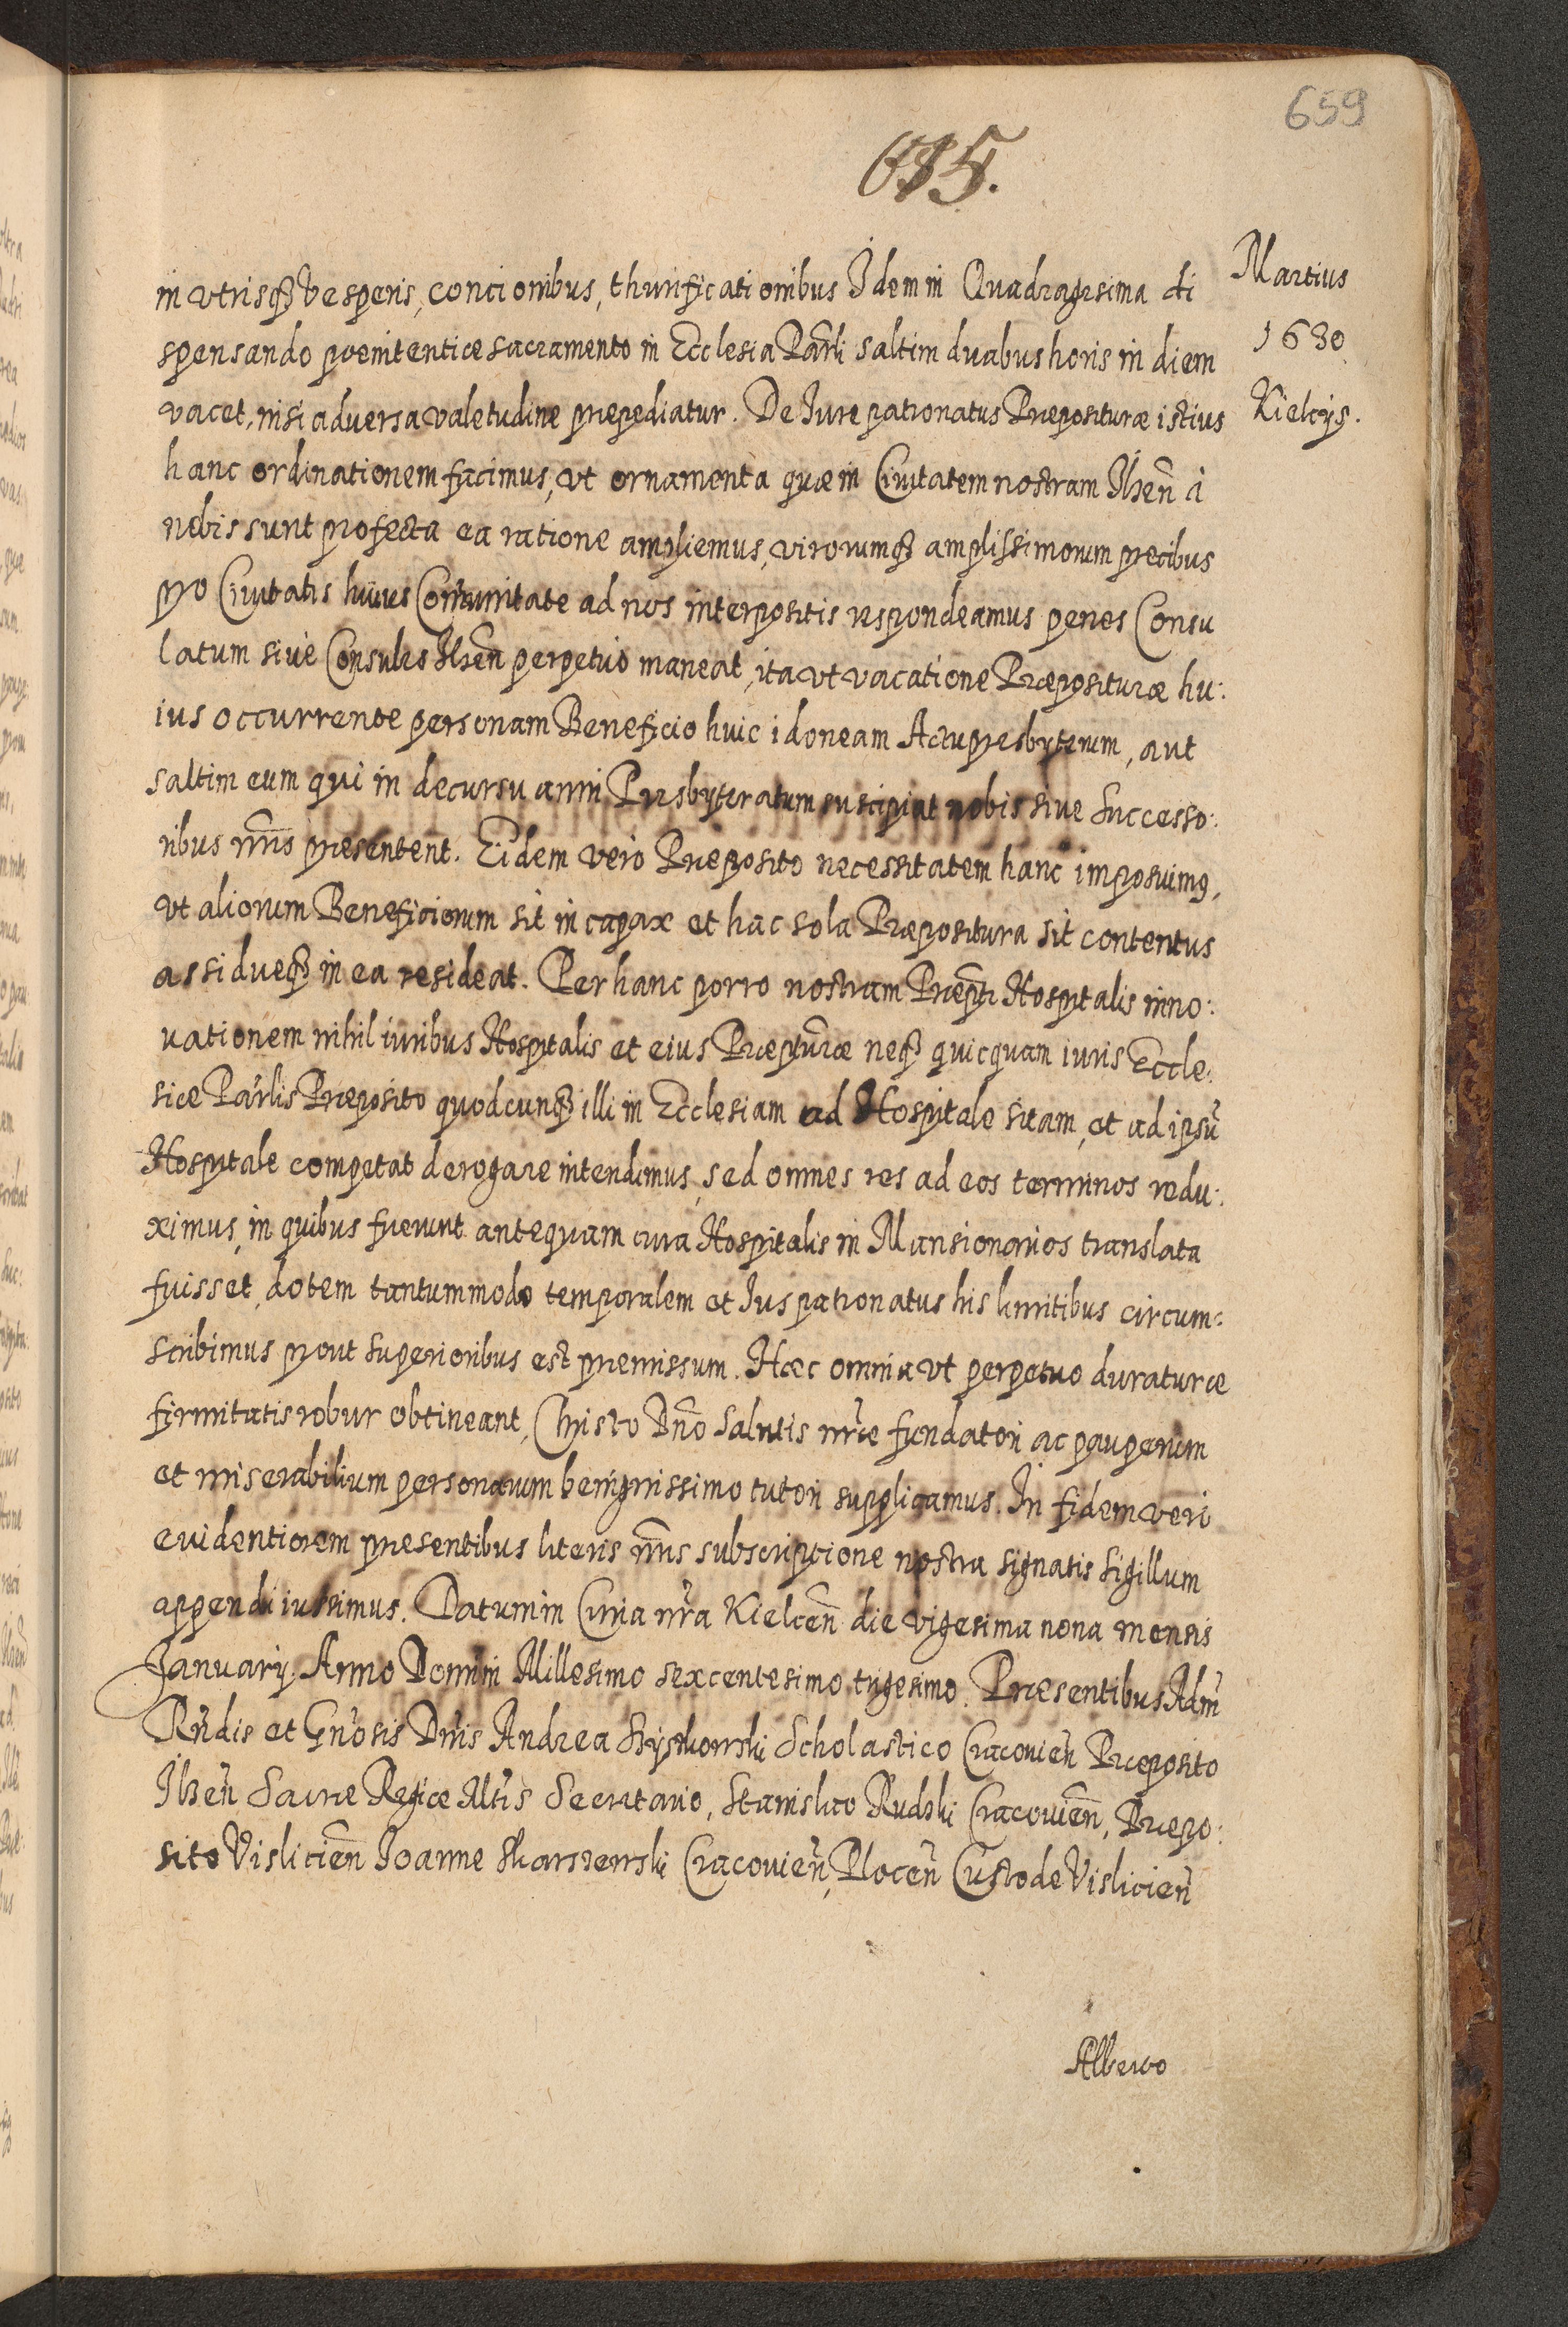 659
615.
Martius
1630
Kielcys.
in vtrisq3 Vesperis, concionibus, thurificationibus Idem in Quadragesima di
spensando poenitentiae sacramento in Ecclesia Parli saltim duabus horis in diem
vacet, nisi adversa valetudine praepediatur. De Iure patronatus Praepositurae istius
hanc ordinationem facimus, vt ornamenta quae in Ciuitatem nostram Ilzeñ à
nobis sunt profecta ea ratione ampliemus, virorumq3 amplissimorum precibus
pro Ciuitatis huius Com̃unitate ad nos interpositis respondeamus penes Consu
latum siue Consules Ilzeñ perpetuo maneat, ita vt vacatione Praepositurae hu:
ius occurrente personam Beneficio huic idoneam Actu presbyterum, aut
saltim eum qui in decursu anni Presbyteratum suscipiat nobis siue Successo:
ribus nr̃is praesentent. Eidem vero Praeposito necessitatem hanc imposuimq,
vt aliorum Beneficiorum sit in capax et hac sola Praepositura sit contentus
assidueq3 in ea resideat. Per hanc porro nostram Praeptr̃ Hospitalis inno:
uationem nihil iuribus Hospitalis et eius Praeptur̃ae neq3 quicquam iuris Eccle:
siae Par̃lis Praeposito quodcunq3 illi in Ecclesiam ad Hospitale sitam, et ad ipsũ
Hospitale competat derogare intendimus, sed omnes res ad eos terminos redu:
ximus, in quibus fuerunt antequam cura Hospitalis in Mansionarios translata
fuisset, dotem tantummodo temporalem et Ius patronatus his limitibus circum:
scribimus prout superioribus est praemissum. Haec omnia vt perpetuo duraturae
firmitatis robur obtineant, Christo Dño salutis nr̃ae fundatori ac pauperum
et miserabilium personarum benignissimo tutori supplicamus. In fidem veri
euidentiorem praesentibus literis nr̃is subscriptione nostra signatis Sigillum
appendi iussimus. Datum in Curia nr̃a Kielceñ die vigesima nona mensis
January. Anno Domini Millesimo sexcentesimo trigesimo. Praesentibus Adm̃
Rñdis et Gñosis Dñis Andrea Szyszkowski Scholastico Cracouieñ Praeposito
Ilzeñ Sacrae Regiae Mtis̃ Secretario, Stanislao Rudzki Cracouieñ, Praepo:
sito Vislicieñ Ioanne Skarszewski Cracouieñ, Ploceñ Custode Vislicieñ
Alberto